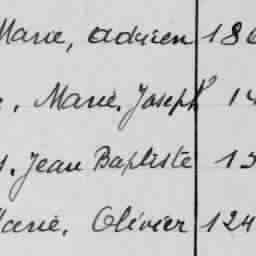 Marie, Adrien 18
Marie, Joseph 1
Jean Baptiste 13
Marie, Olivier 124